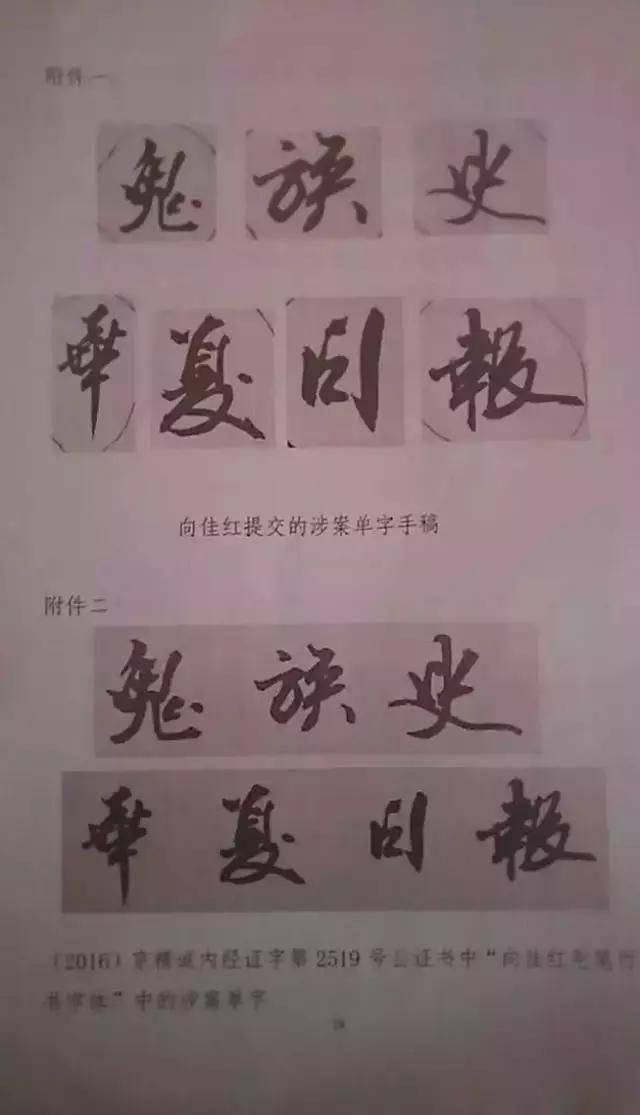 附件一
鬼族史
華夏日報
向佳红提交的涉案单字手稿
附件二
鬼族史
華夏日報
(2016)京精诚内经证字第2519号公证书中“向佳红毛笔行
书字体”中的涉案单字